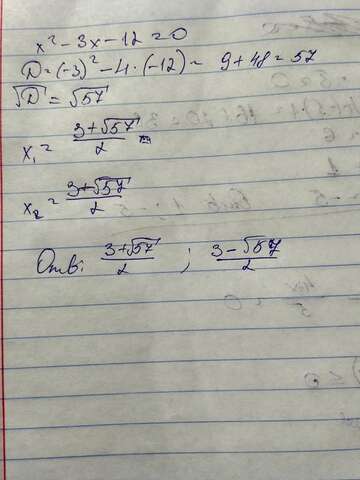 x² - 3x - 12 = 0
D = (-3)² - 4 · (-12) = 9 + 48 = 57
√D = √57
x₁ = (3+√57)/2
x₂ = (3+√57)/2
Отв: (3+√57)/2 ; (3-√57)/2